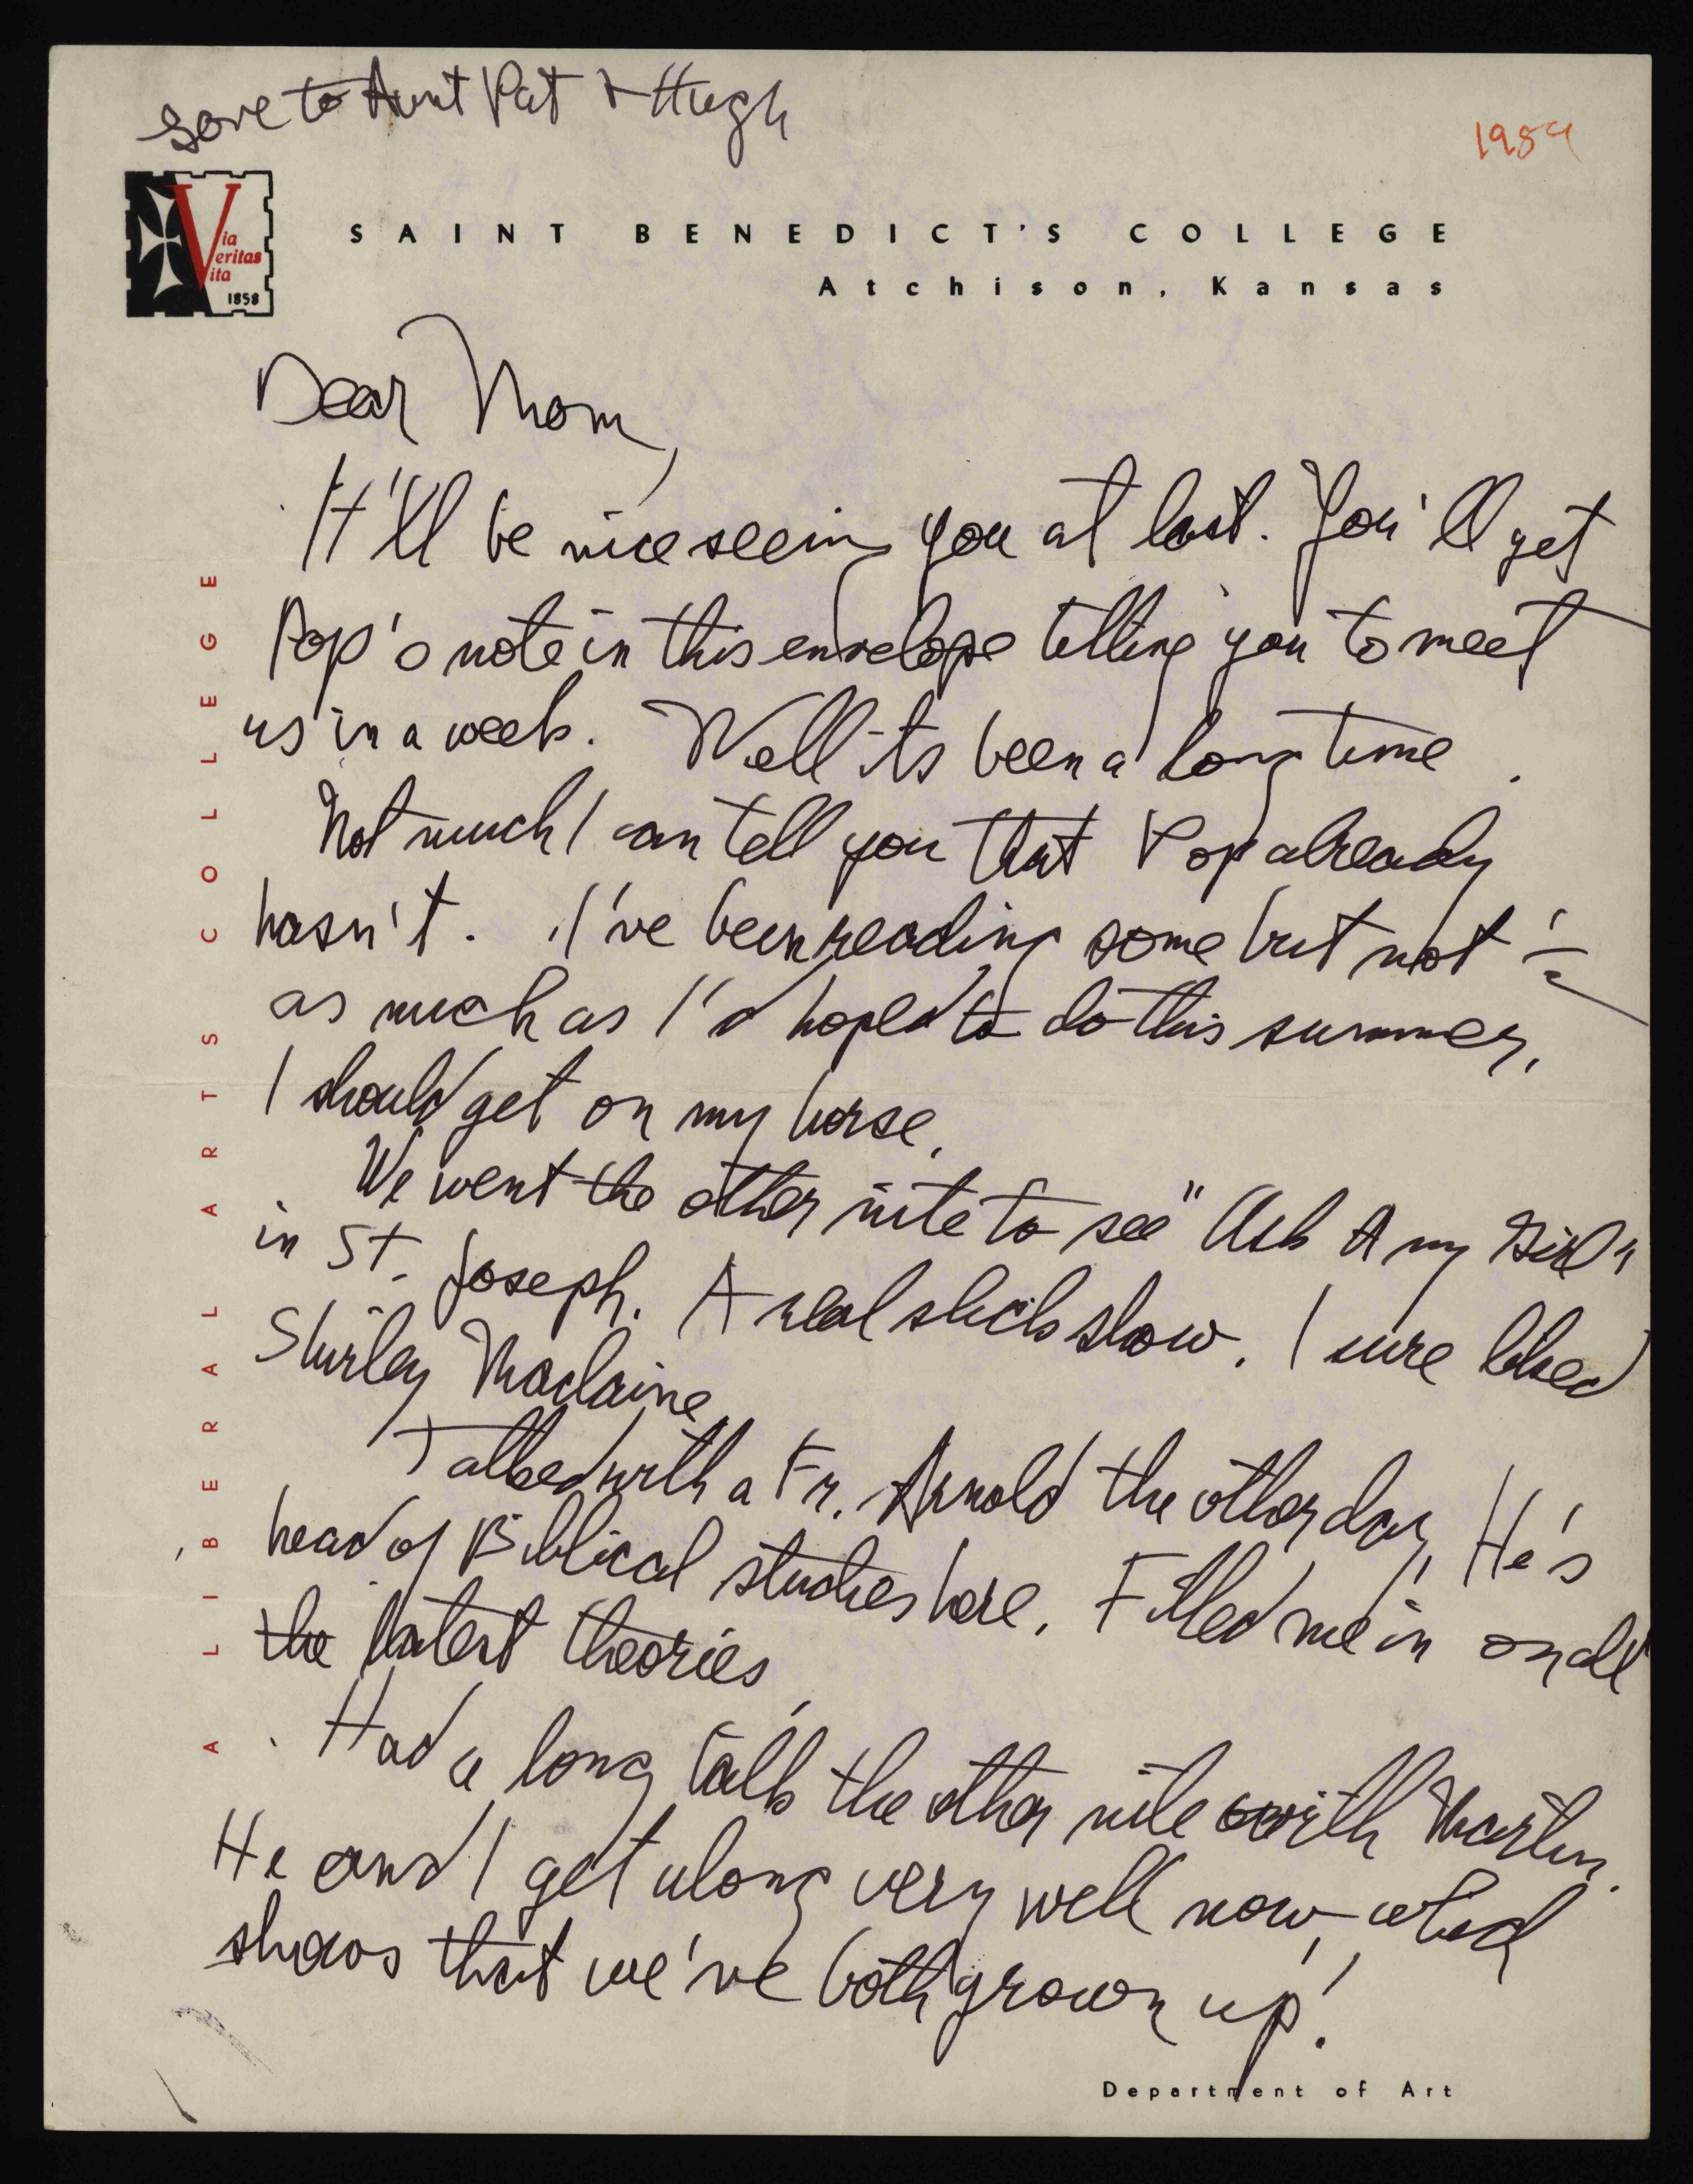 Love to Aunt Pat & Hugh
1959
Via
Veritas
Vita
1858
SAINT BENEDICT'S COLLEGE
Atchison, Kansas
Dear Mom,
It'll be nice seeing you at last. You'll get
Pop's note in this envelope telling you to meet
us in a week. Well its been a long time.
Not much I can tell you that Pop already
hasn't. I've been reading some but not
as much as I'd hoped to do this summer.
I should get on my horse.
We went the other nite to see "Ask Any Girl"
in St. Joseph. A real slick show. I sure liked
Shirley Maclaine.
Talked with a Fr. Arnold the other day. He's
head of Biblical studies here. Filled me in on all
the latest theories.
Had a long talk the other nite with Martin.
He and I get along very well now, which
shows that we've both grown up!
A LIBERAL ARTS COLLEGE
Department of Art